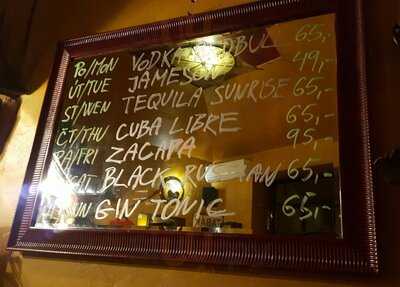 PO/MON VODKA 65,-
ÚT/TUE JAMESON 49,-
ST/WEN TEQUILA SUNRISE 65,-
ČT/THU CUBA LIBRE 65,-
PÁ/FRI ZACAPA 95,-
BLACK RUSSIAN 65,-
GIN TONIC 65,-